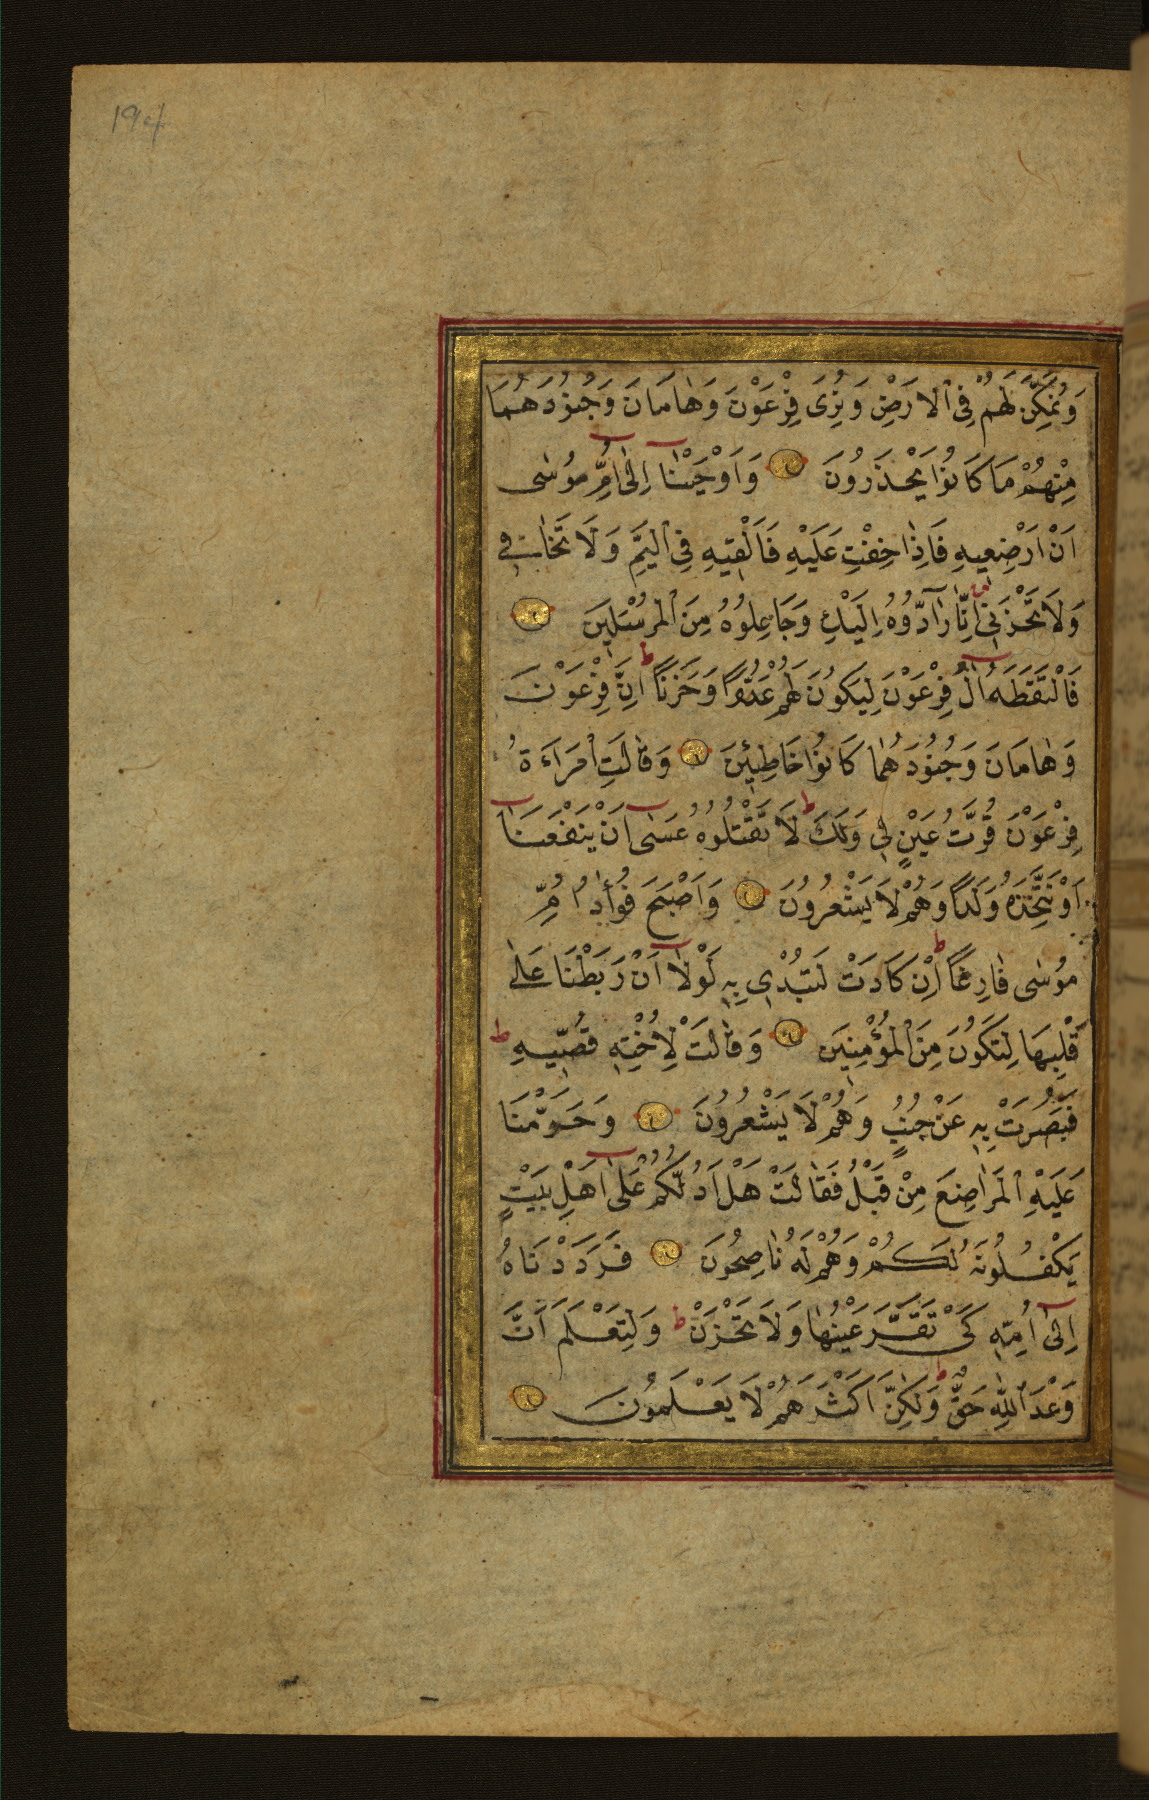 194
وَنُمَكِّنَ لَهُمْ فِى ٱلْاَرْضِ وَنُرِىَ فِرْعَوْنَ وَهَامَانَ وَجُنُودَهُمَا
مِنْهُمْ مَا كَانُوا يَحْذَرُونَ وَاَوْحَيْنَا اِلٰى اُمِّ مُوسٰى
اَنْ اَرْضِعِيهِ فَاِذَا خِفْتِ عَلَيْهِ فَاَلْقِيهِ فِى ٱلْيَمِّ وَلَا تَخَافِى
وَلَا تَحْزَنِى اِنَّا رَآدُّوهُ اِلَيْكِ وَجَاعِلُوهُ مِنَ ٱلْمُرْسَلِينَ
فَالْتَقَطَهُ اٰلُ فِرْعَوْنَ لِيَكُونَ لَهُمْ عَدُوًّا وَحَزَنًا ط اِنَّ فِرْعَوْنَ
وَهَامَانَ وَجُنُودَهُمَا كَانُوا خَاطِئِينَ وَقَالَتِ ٱمْرَاَةُ
فِرْعَوْنَ قُرَّتُ عَيْنٍ لِى وَلَكَ ط لَا تَقْتُلُوهُ عَسٰى اَنْ يَنْفَعَنَا
اَوْ نَتَّخِذَهُ وَلَدًا وَهُمْ لَا يَشْعُرُونَ وَاَصْبَحَ فُؤَادُ اُمِّ
مُوسٰى فَارِغًا ط اِنْ كَادَتْ لَتُبْدِى بِهِ لَوْلَا اَنْ رَبَطْنَا عَلٰى
قَلْبِهَا لِتَكُونَ مِنَ ٱلْمُؤْمِنِينَ وَقَالَتْ لِاُخْتِهِ قُصِّيهِ ط
فَبَصُرَتْ بِهِ عَنْ جُنُبٍ وَهُمْ لَا يَشْعُرُونَ وَحَرَّمْنَا
عَلَيْهِ ٱلْمَرَاضِعَ مِنْ قَبْلُ فَقَالَتْ هَلْ اَدُلُّكُمْ عَلٰى اَهْلِ بَيْتٍ
يَكْفُلُونَهُ لَكُمْ وَهُمْ لَهُ نَاصِحُونَ فَرَدَدْنَاهُ
اِلٰى اُمِّهِ كَىْ تَقَرَّ عَيْنُهَا وَلَا تَحْزَنَ ط وَلِتَعْلَمَ اَنَّ
وَعْدَ ٱللّٰهِ حَقٌّ ط وَلٰكِنَّ اَكْثَرَهُمْ لَا يَعْلَمُونَ